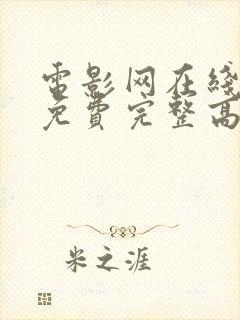 電影网在綫
免費完整高
米之涯